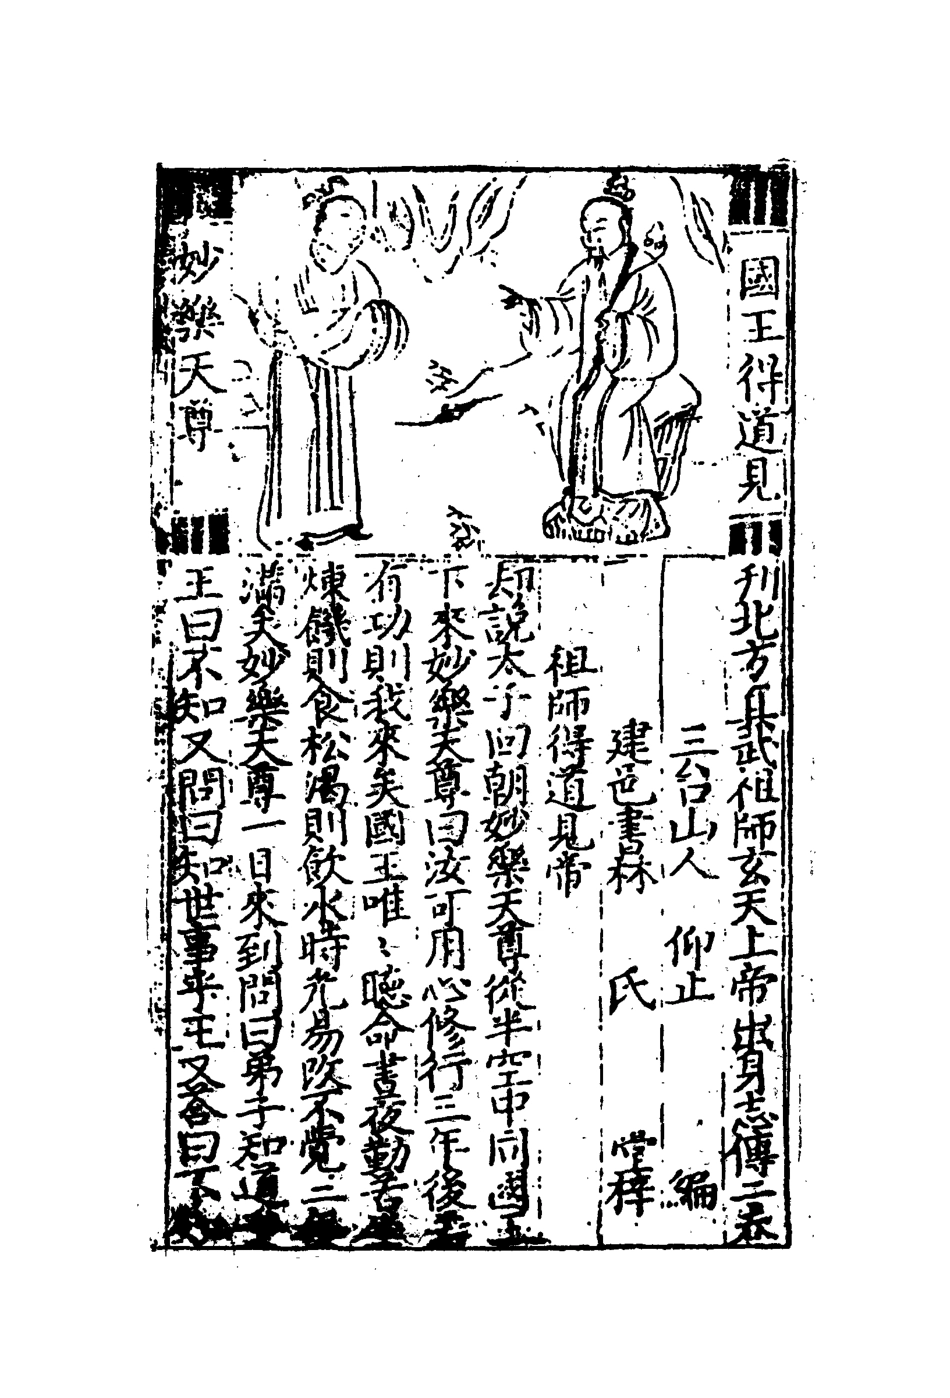 國王得道見
妙樂天尊
刋北方真武祖師玄天上帝出身志傳二卷
三台山人 仰止 編
建邑書林 氏 梓
祖師得道見帝
却說太子回朝妙樂天尊從半空中問國王
下來妙樂天尊曰汝可用心修行三年後若
有功則我來矣國王唯〻聽命晝夜勤苦
煉饑則食松渴則飲水時光易改不覺三年
滿矣妙樂天尊一日來到問曰弟子知道
王曰不知又問曰知世事乎王又答曰不知